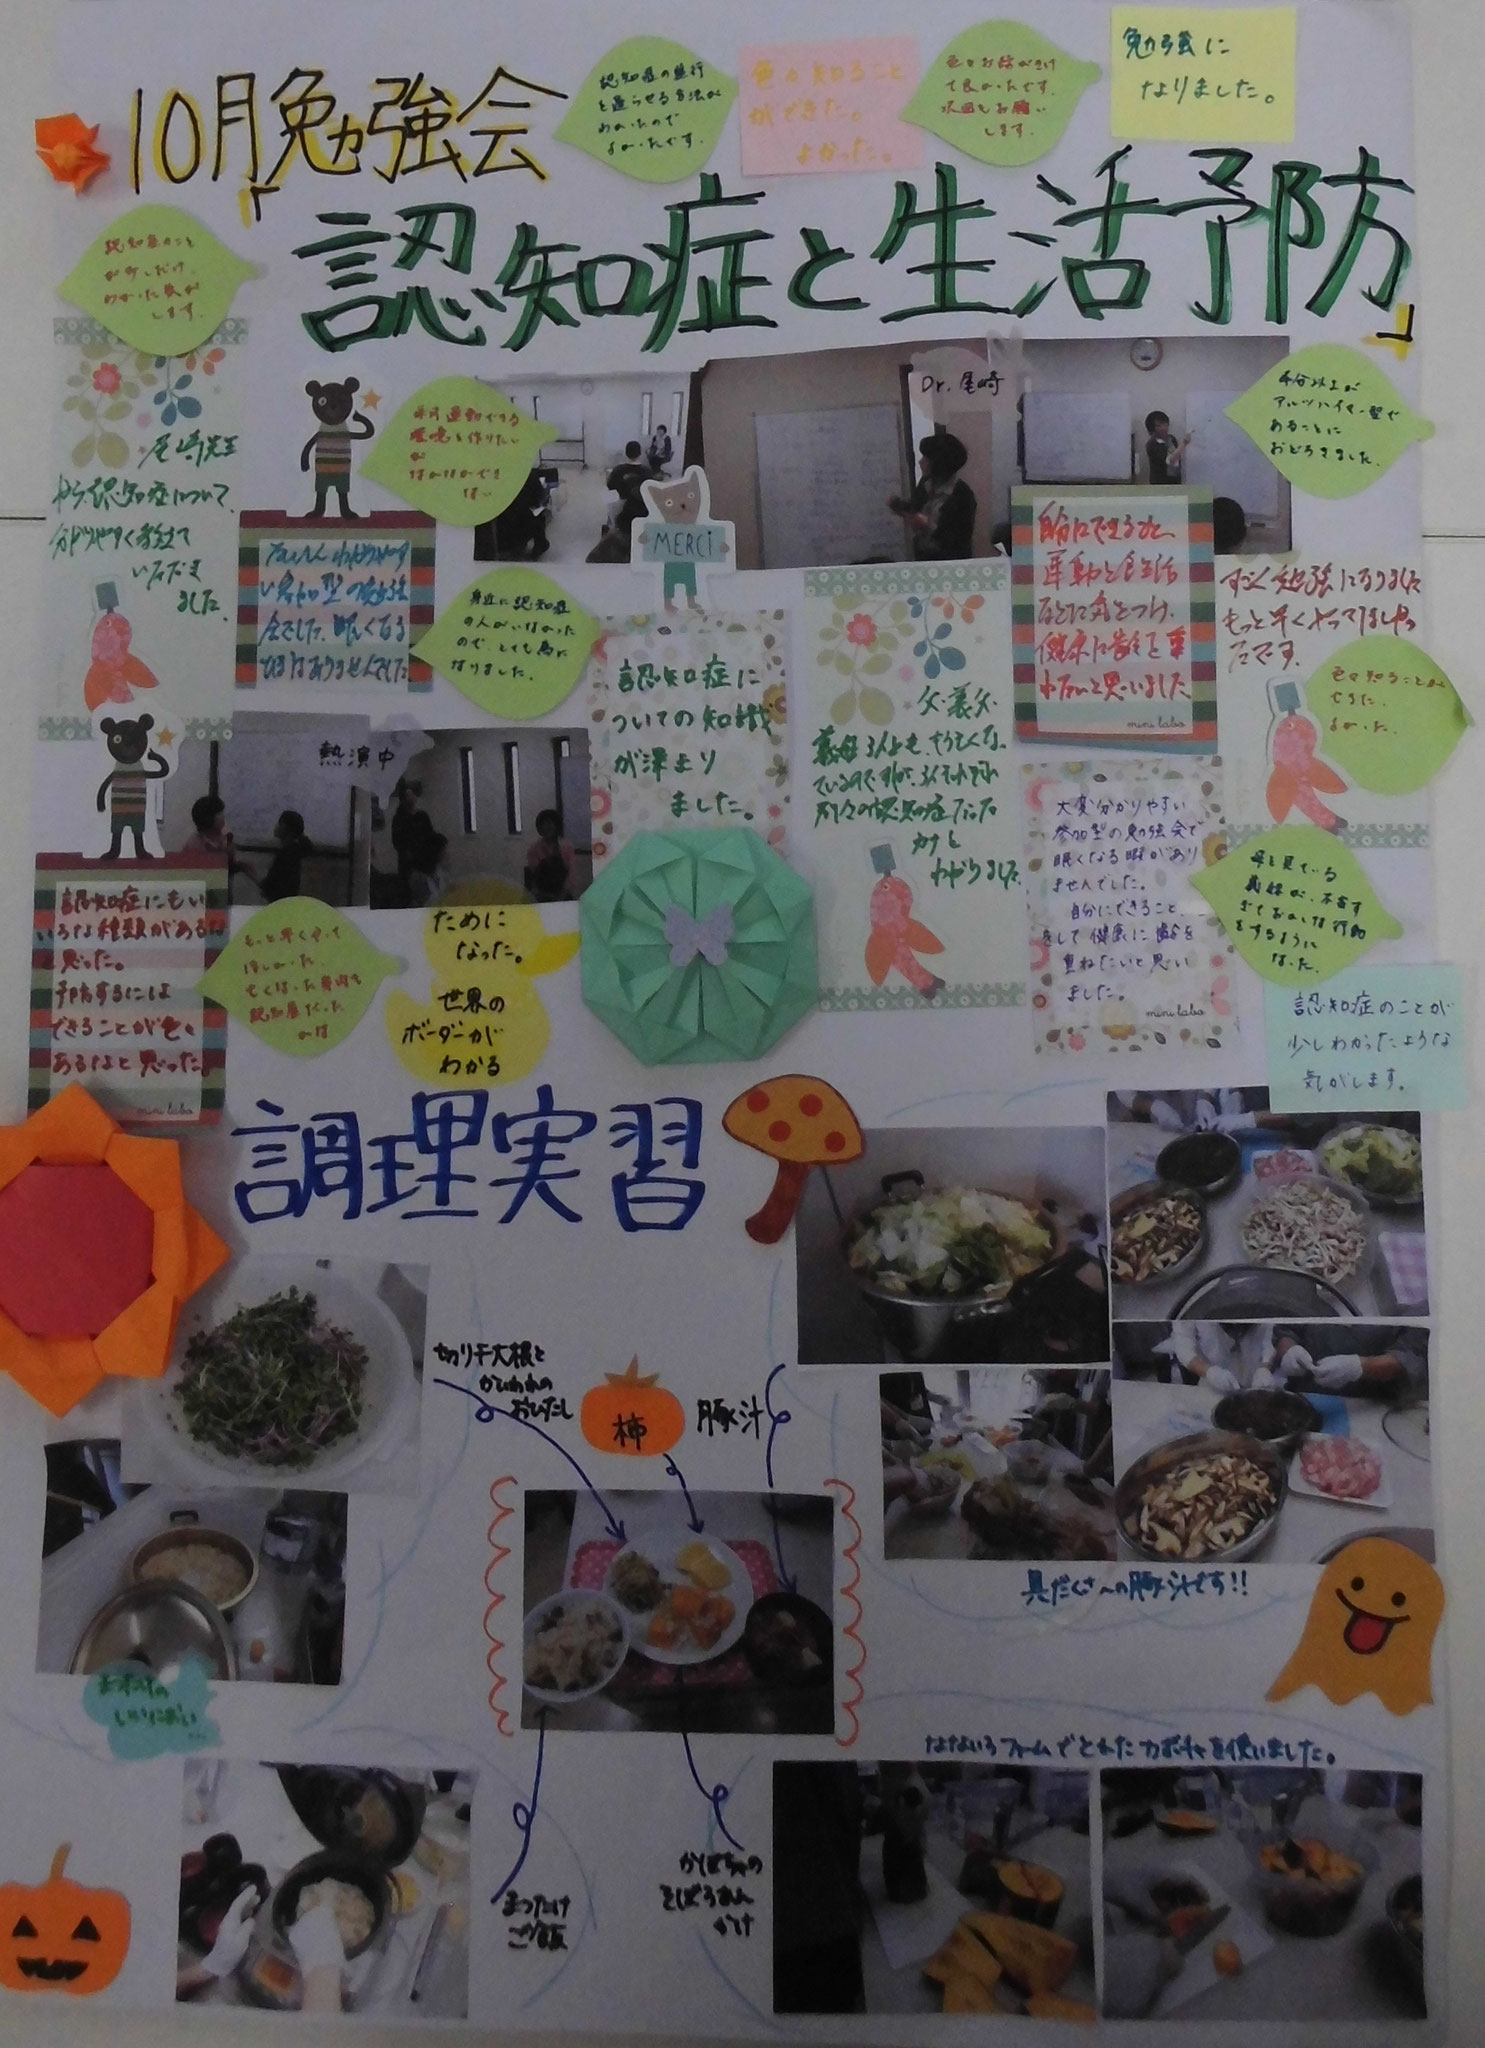 10月勉強会
「認知症と生活予防」
認知症の進行
を遅らせる方法が
わかったので
よかったです。
色々知ること
ができた。
よかった。
色々お話がきけ
て良かったです。
次回もお願い
します。
勉強に
なりました。
認知症のこと
が少しだけ
わかった気が
します。
尾崎先生
から認知症について、
分かりやすく教えて
いただき
ました。
毎日運動できる
環境を作りたい
が
なかなかでき
ない
Dr.尾崎
半分以上が
アルツハイマー型で
あることに
おどろきました。
MERCi
たいへんわかりやす
い参加型の勉強
会でした。眠くなる
ひまはありませんでした。
身近に認知症
の人がいなかった
ので、とても為に
なりました。
認知症に
ついての知識
が深まり
ました。
父・義父・
義母3人とも、亡くな
っているのですが、3人それぞれ
別々の認知症だった
カナと
わかりました
自分にできること、
運動と食生活
などに気をつけ、
健康に齢を重
ねたいと思いました
mini labo
すごく勉強になりました
もっと早くやってましかっ
たです。
色々知ることが
できた。
よかった。
熱演中
大変分かりやすい
参加型の勉強会で
眠くなる暇があり
ませんでした。
自分にできること、
をして健康に齢を
重ねたいと思い
ました。
mini labo
母を見ている
義妹が、不安す
ぎておかしな行動
をするように
なった。
認知症のことが
少しわかったような
気がします。
認知症にもい
ろいろな種類があるな
と思った。
予防するには
できることが色々
あるなと思った。
mini labo
もっと早くやって
ほしかった。
亡くなった身内も
認知症だった
のは
ために
なった。
世界の
ボーダーが
わかる
調理実習
切り干大根と
かいわれの
おひたし
柿
豚汁
具だくさ〜の豚汁です!!
なないろファームでとれたカボチャを使いました。
まつたけ
ご飯
かぼちゃの
そぼろあん
かけ